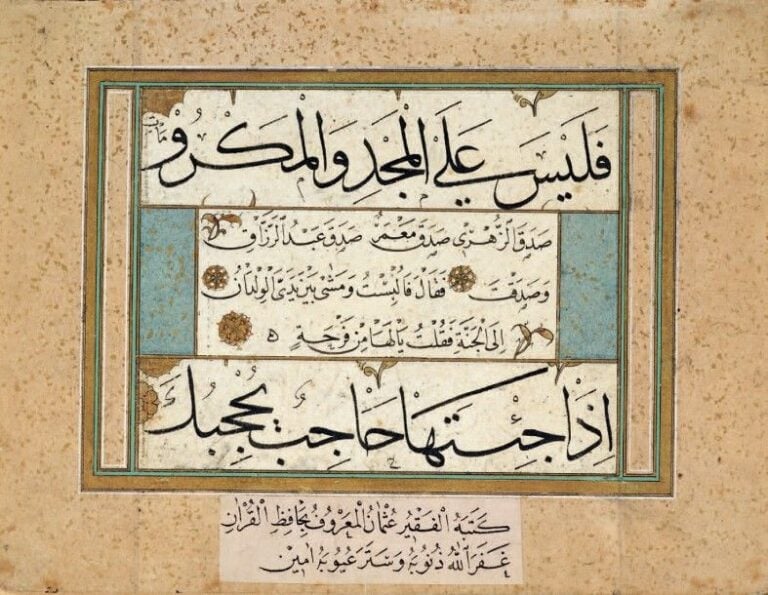 فَلَيْسَ عَلَى الْمَجْدِ وَالْمَكْرُمَاتِ
صَدَقَ الزُّهْرِيُّ صَدَقَ مَعْمَرٌ صَدَقَ عَبْدُ الرَّزَّاقِ
وَصَدَقْتَ فَقَالَ فَالْبِسْتُ وَمَشٰى بَيْنَ يَدَيَّ الْوِلْدَانُ
اِلَى الْجَنَّةِ فَقُلْتُ يَالَهَا مِنْ فَرْحَةٍ ه
اِذَا جِئْتَهَا حَاجِبٌ يَحْجُبُكَ
كَتَبَهُ الْفَقِيرُ عُثْمَانُ الْمَعْرُوفُ بِحَافِظِ الْقُرْاٰنِ
غَفَرَ اللّٰهُ ذُنُوبَهُ وَسَتَرَ عُيُوبَهُ اٰمِينَ